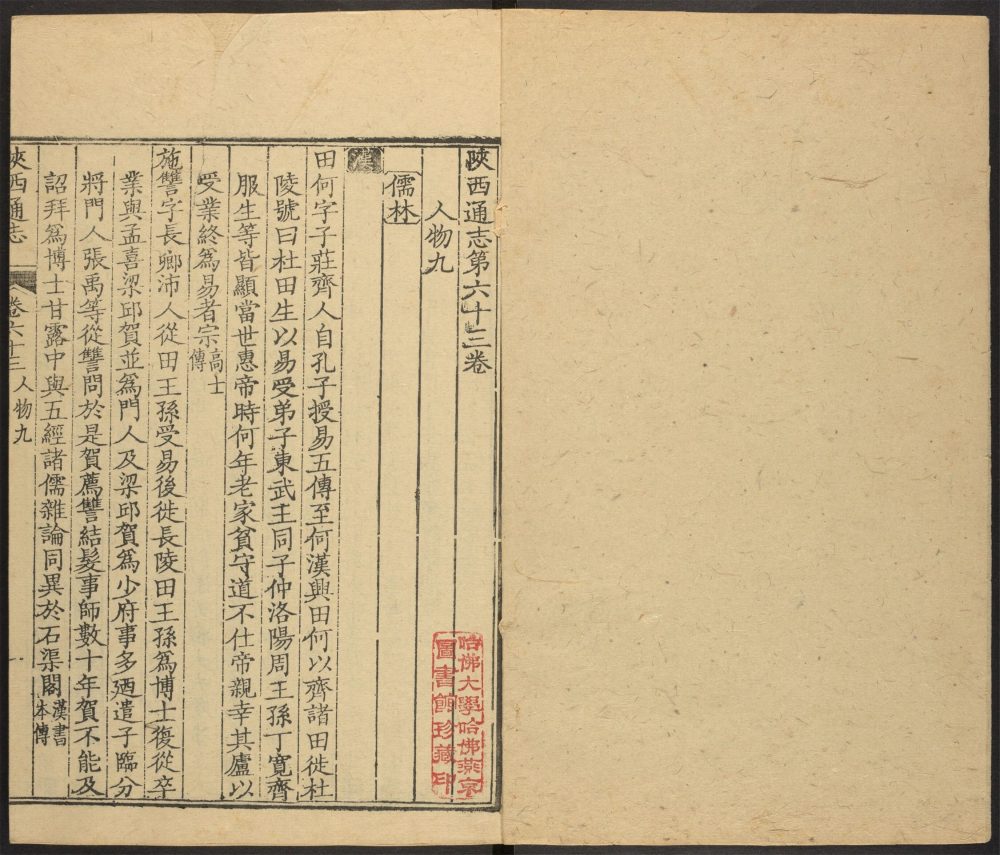 陝西通志第六十三卷
人物九
儒林
漢
田何字子莊齊人自孔子授易五傳至何漢興田何以齊諸田徙杜
陵號曰杜田生以易受弟子東武王同子仲洛陽周王孫丁寬齊
服生等皆顯當世惠帝時何年老家貧守道不仕帝親幸其廬以
受業終爲易者宗高士傳
施讐字長卿沛人從田王孫受易後徙長陵田王孫爲博士復從卒
業與孟喜梁邱賀並爲門人及梁邱賀爲少府事多廼遣子臨分
將門人張禹等從讐問於是賀薦讐結髮事師數十年賀不能及
詔拜爲博士甘露中與五經諸儒雜論同異於石渠閣漢書本傳
陝西通志 卷六十三 人物九 一
哈佛大學哈佛燕京
圖書館珍藏印